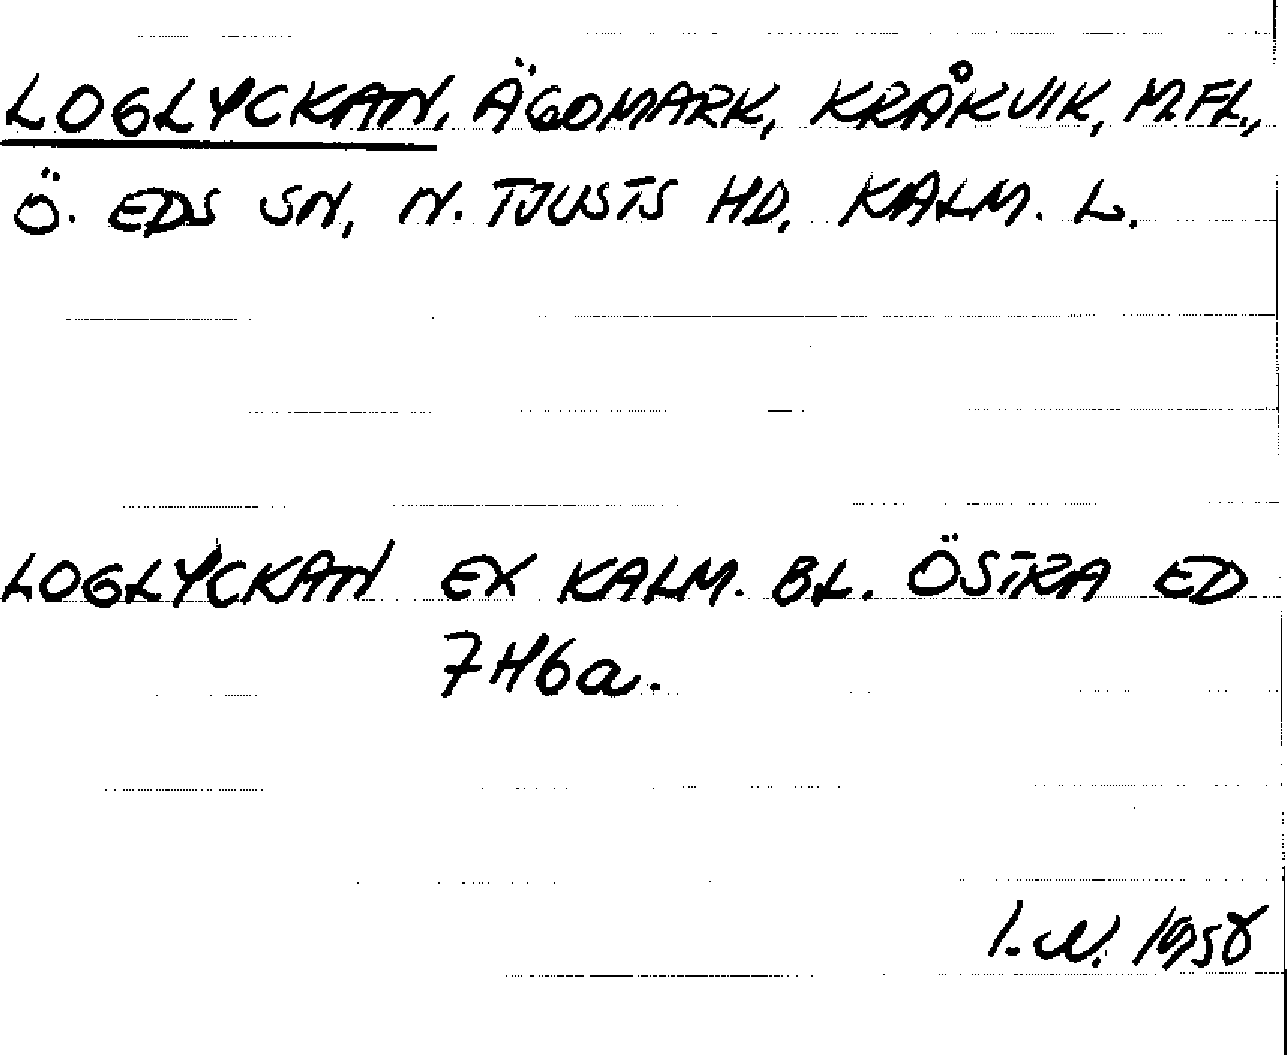 LOGLYCKAN, ÄGOMARK, KRÅKVIK, M.FL.,
Ö. EDS SN, N. TJUSTS HD, KALM. L.
LOGLYCKAN EX KALM. BL. ÖSTRA ED
7H6a.
I.N. 1958